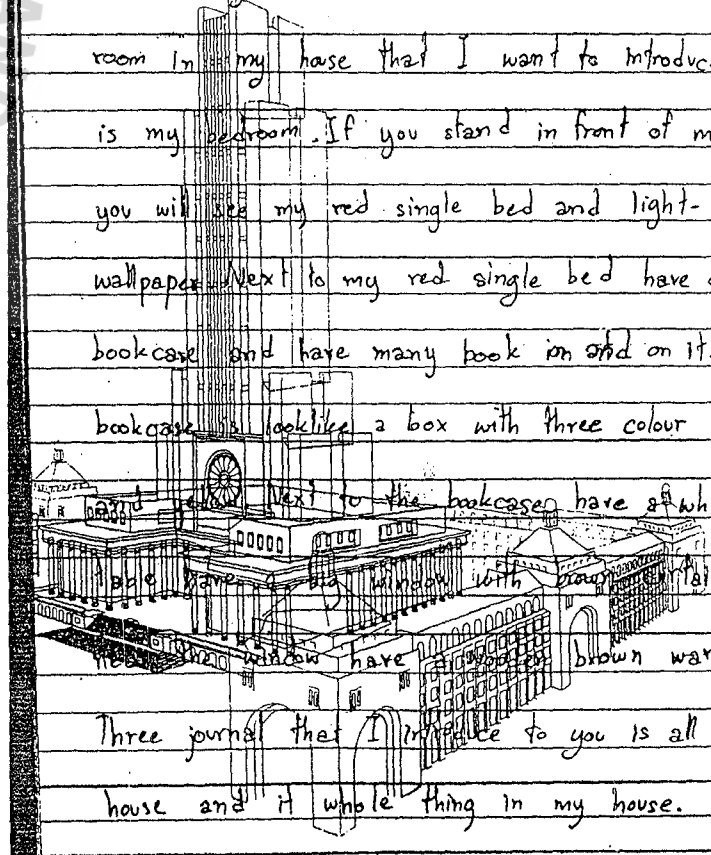 room in my house that I want to introduc
is my bedroom. If you stand in front of m
you will see my red single bed and light-
wallpaper. Next to my red single bed have a
bookcase and have many book in and on it.
bookcase is looklike a box with three colour
and Next to the bookcase have a wh
table have a big window with brown curtai
near the window have a wooden brown war
Three journal that I introduce to you is all
house and it whole thing in my house.